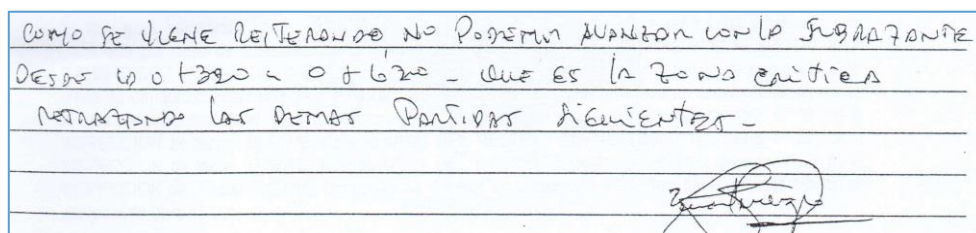 COMO SE VIENE REITERANDO NO PODEMOS AVANZAR CON LA SUBRAZANTE
DESDE 0+320 a 0+620 - QUE ES la ZONA CRITICA
RETRAZANDO las DEMAS PARTIDAS SIGUIENTES -